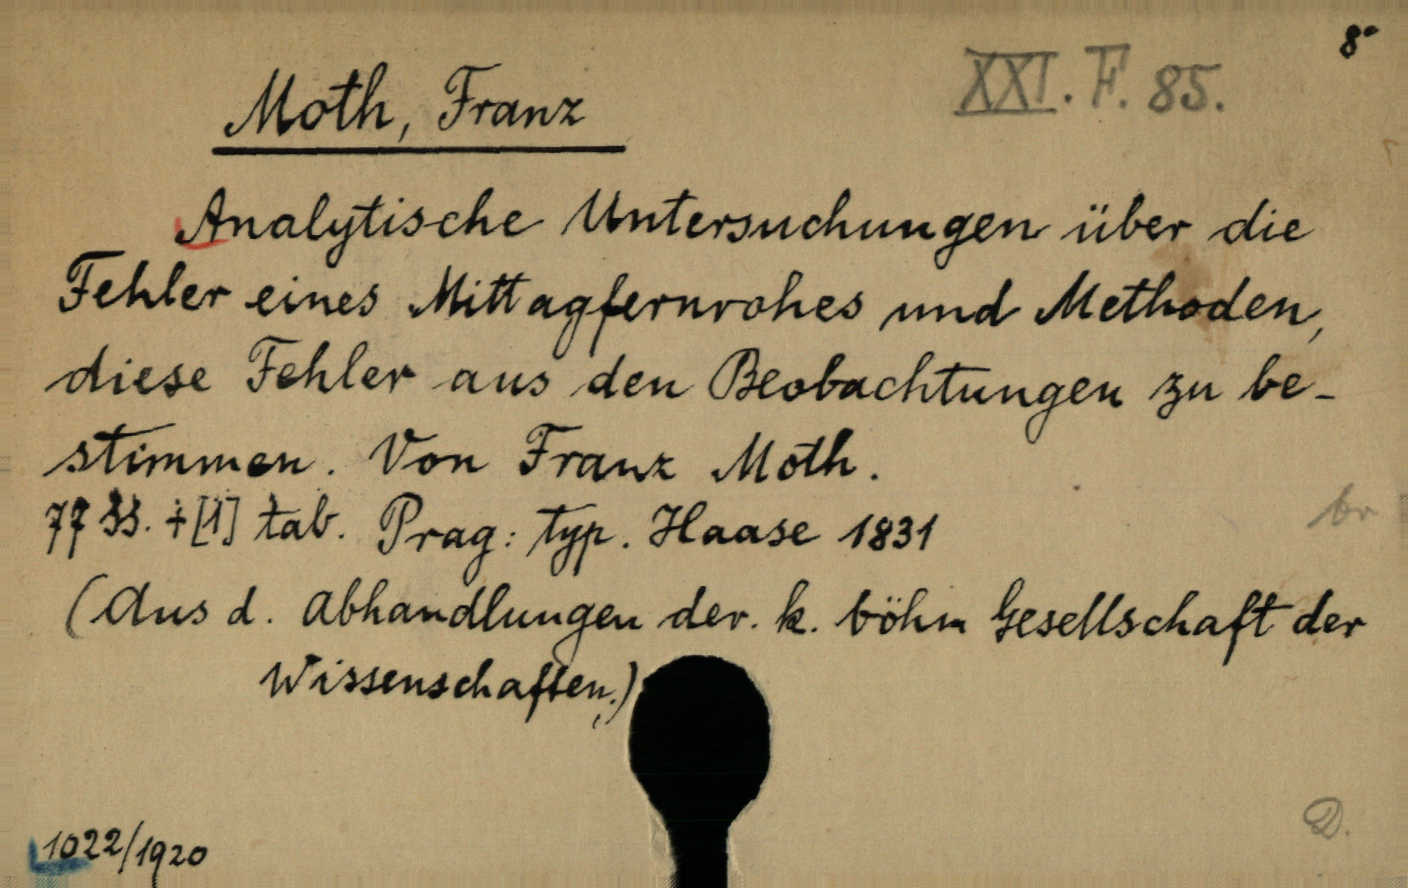 8°
XXI. F. 85.
Moth, Franz
Analytische Untersuchungen über die
Fehler eines Mittagfernrohes und Methoden,
diese Fehler aus den Beobachtungen zu be-
stimmen. Von Franz Moth.
77 SS. + [1] tab. Prag: typ. Haase 1831
br
(Aus d. Abhandlungen der. k. böhm Gesellschaft der
Wissenschaften.)
D.
1022/1920